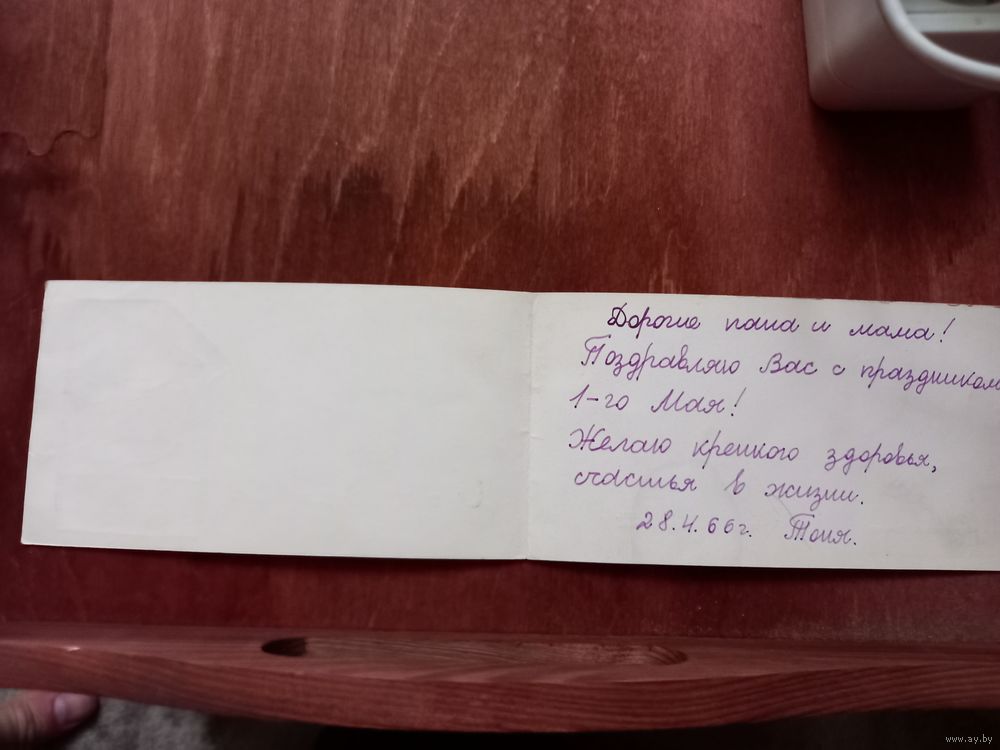 Дорогие папа и мама!
Поздравляю Вас с праздником
1-го Мая!
Желаю крепкого здоровья,
счастья в жизни.
28.4.66г. Тоня.
www.ay.by